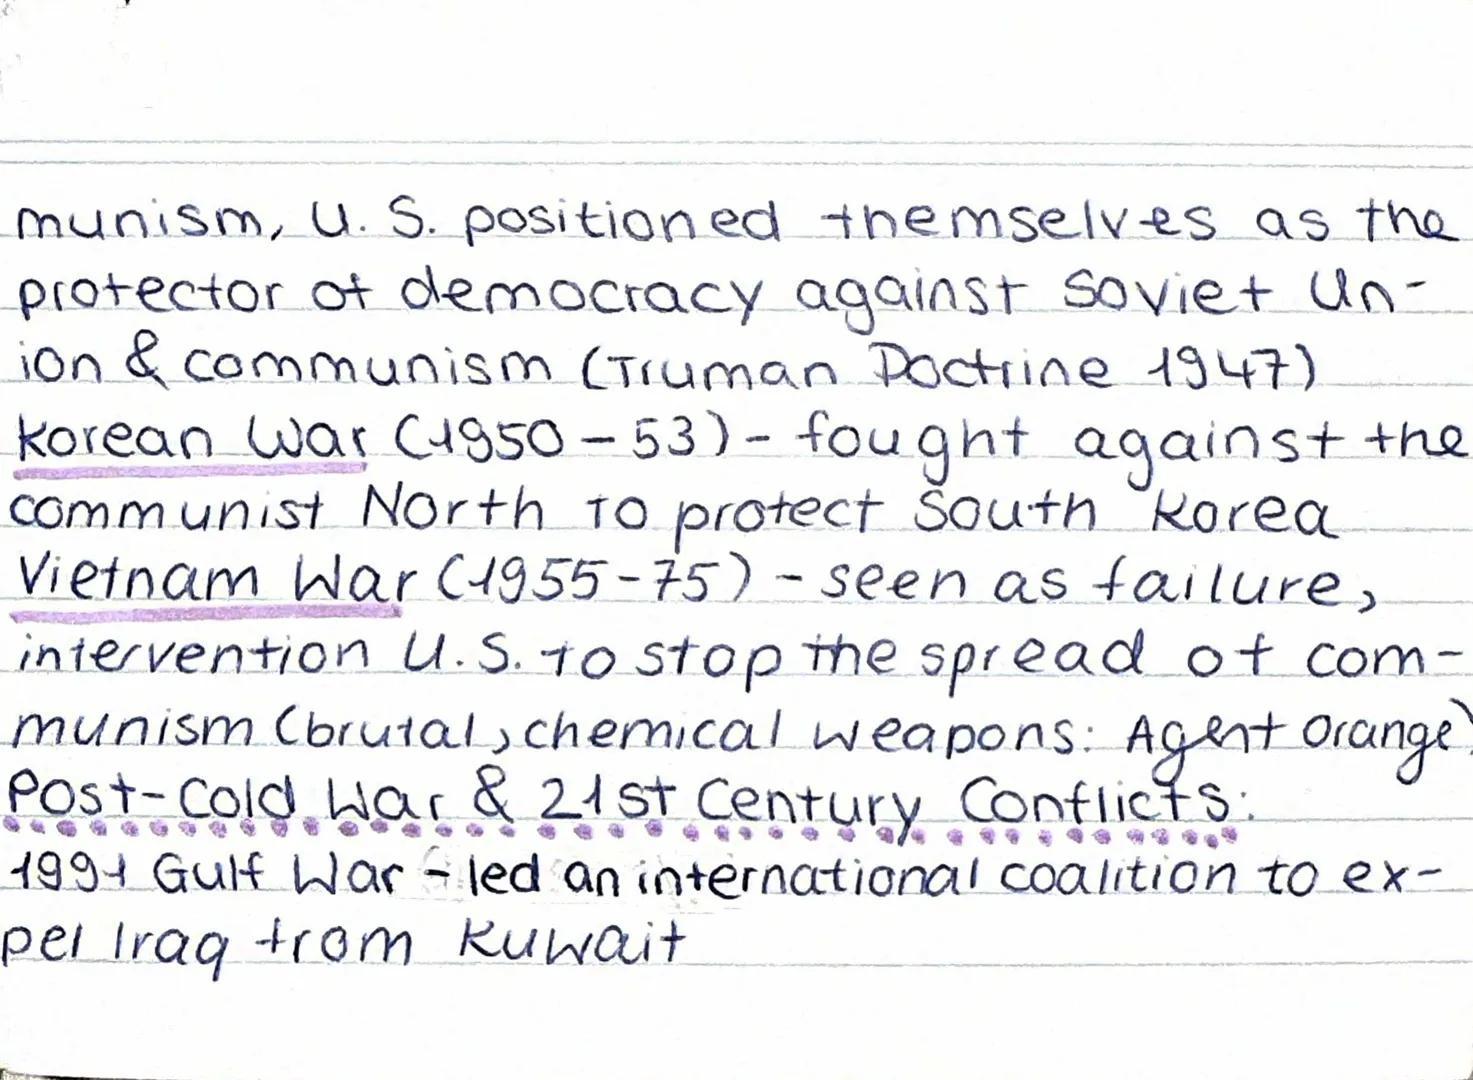 munism, U.S. positioned themselves as the
protector of democracy against Soviet Un-
ion & communism (Truman Doctrine 1947)
Korean War (1950-53) - fought against the
communist North to protect South Korea
Vietnam War (1955-75) - seen as failure,
intervention U.S. to stop the spread of com-
munism (brutal, chemical weapons: Agent Orange)
Post-Cold War & 21st Century Conflicts:
1991 Gulf War - led an international coalition to ex-
pel Iraq from Kuwait